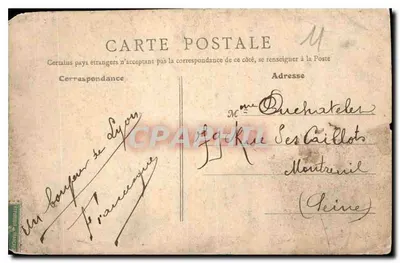 CARTE POSTALE
11
Certains pays étrangers n'acceptent pas la correspondance de ce côté, se renseigner à la Poste
Correspondance
Adresse
Un bonjour de Lyon
Mme Duchatelet
59 Rue Ses Caillots
Montreuil
(Seine)
CPARAMA